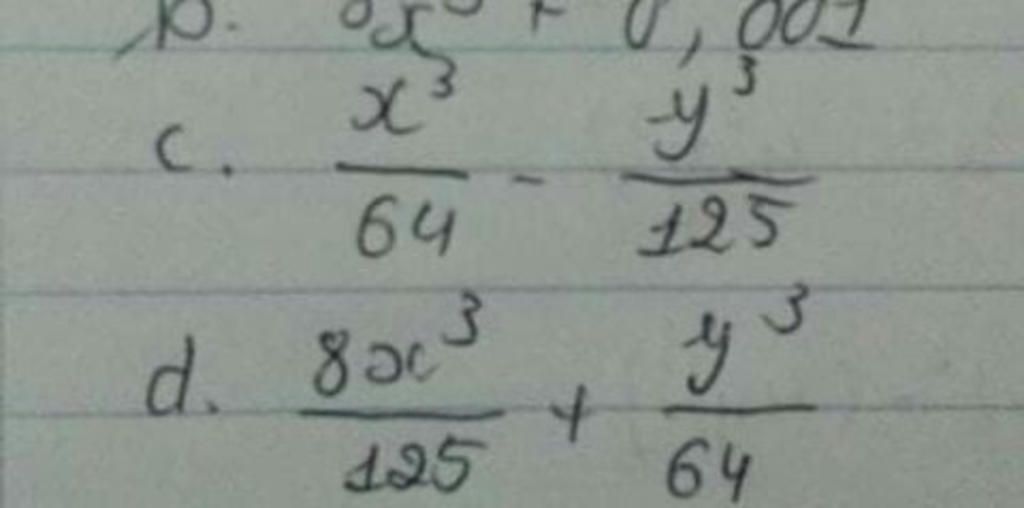 b. 8x³ + 0,001
c. x³/64 - y³/125
d. 8x³/125 + y³/64